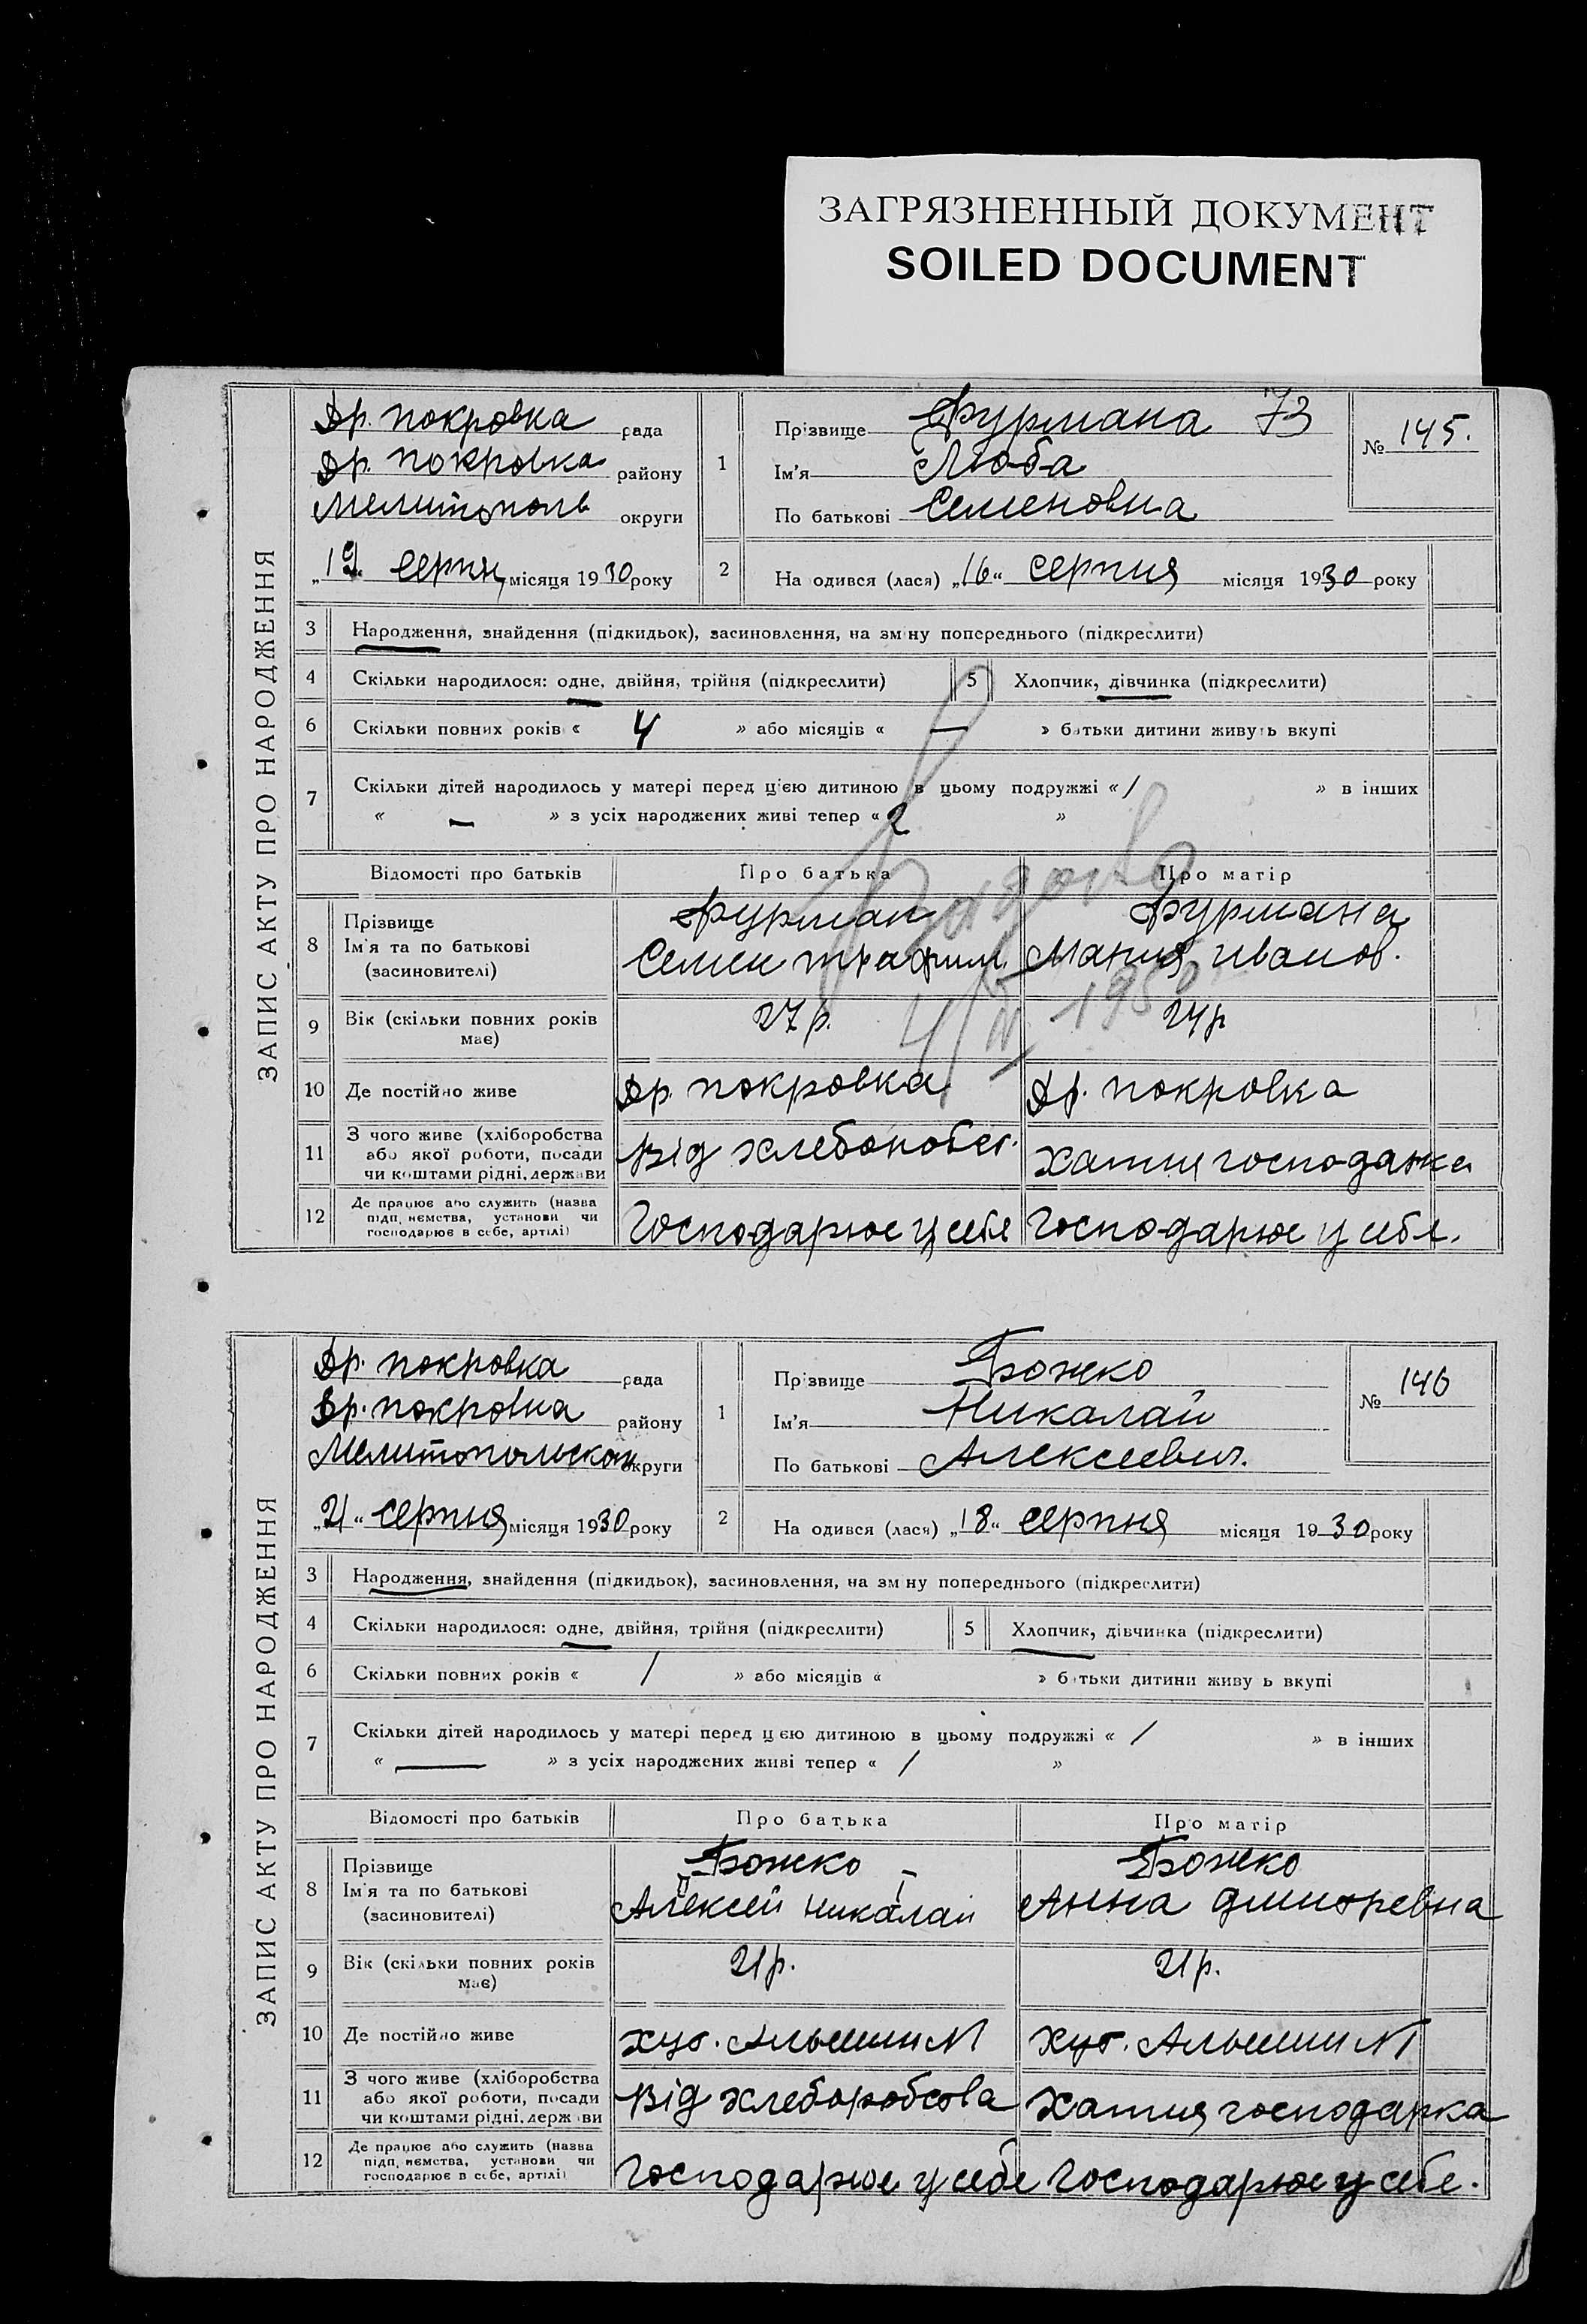 ЗАГРЯЗНЕННЫЙ ДОКУМЕНТ
SOILED DOCUMENT
ЗАПИС АКТУ ПРО НАРОДЖЕННЯ
Др. покровка рада
Др. покровка району
Мелитополь округи
„19“ серпня місяця 1930 року
1
Прізвище Фурмана 73
Ім'я Люба
По батькові Семеновна
№ 145.
2 На одився (лася) „16“ серпня місяця 1930 року
3 Народження, знайдення (підкидьок), засиновлення, на зм ну попереднього (підкреслити)
4 Скільки народилося: одне, двійня, трійня (підкреслити) 5 Хлопчик, дівчинка (підкреслити)
6 Скільки повних років « 4 » або місяців « — » батьки дитини живуть вкупі
7 Скільки дітей народилось у матері перед цією дитиною в цьому подружжі « 1 » в інших
« — » з усіх народжених живі тепер « 2 »
Відомості про батьків Про батька Про матір
8 Прізвище
Ім'я та по батькові
(засновителі)
Фурман
Семен трафим.
Фурмана
Мания иванов.
1950
9 Вік (скільки повних років має) 27 р. 24 р
10 Де постійно живе Др. покровка Др. покровка
11 З чого живе (хліборобства
або якої роботи, посади
чи коштами рідні, держави
Від
Хатня господарка
12 Де працює або служить (назва
підп, иємства, установи чи
господарює в себе, артілі)
Господарює у себе Господарює у себе.
ЗАПИС АКТУ ПРО НАРОДЖЕННЯ
Др. покровка рада
Вр. покровка району
Мелитопольскои округи
„21“ серпня місяця 1930 року
1
Прізвище Божко
Ім'я Николай
По батькові Алексеевич.
№ 146
2 На одився (лася) „18“ серпня місяця 1930 року
3 Народження, знайдення (підкидьок), засиновлення, на зм ну попереднього (підкреслити)
4 Скільки народилося: одне, двійня, трійня (підкреслити) 5 Хлопчик, дівчинка (підкреслити)
6 Скільки повних років « / » або місяців « » б тьки дитини живу ь вкупі
7 Скільки дітей народилось у матері перед ц єю дитиною в цьому подружжі « / » в інших
« — » з усіх народжених живі тепер « / »
Відомості про батьків Про батька Про матір
8 Прізвище
Ім'я та по батькові
(засновителі)
Божко
Алексей Николай
Божко
Анна дмитревна
9 Вік (скільки повних років має) 21 р. 21 р.
10 Де постійно живе хут. хут.
11 З чого живе (хліборобства
або якої роботи, посади
чи коштами рідні, держ ви
Від хлеборобства
Хатня господарка
12 Де працює або служить (назва
підп, иємства, установи чи
господарює в себе, артілі)
Господарює у себе Господарює у себе.